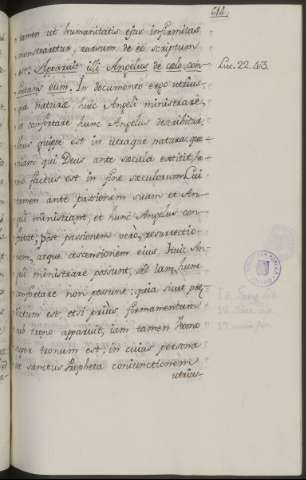 tamen ut humanitatis ejus infirmitas
monstraretur, rursum de eo scriptum
est. Apparuit illi Angelus de cælo con-
fortans eum. In documento ergo utrius-
que naturæ huic Angeli ministrare,
et confortare hunc Angelus describitur,
ipse est in utraque natura, quo-
niam qui Deus ante sæcula extitit, ho-
mo factus est in fine sæculorum. Cui
tamen ante passionem suam et An-
geli ministrant, et hunc Angelus con-
fortat; post passionem verò, resurrectio-
nem, atque ascensionem ejus, huic An-
geli ministrare possunt, sed iam hunc
confortare non possunt; quia sicut
est, etsi prius firmamentum
sub trono apparuit, iam tamen homo
super tronum est, in cuius persona
sanctus Propheta coniunctionem
utrius-
Luc. 22. 43.